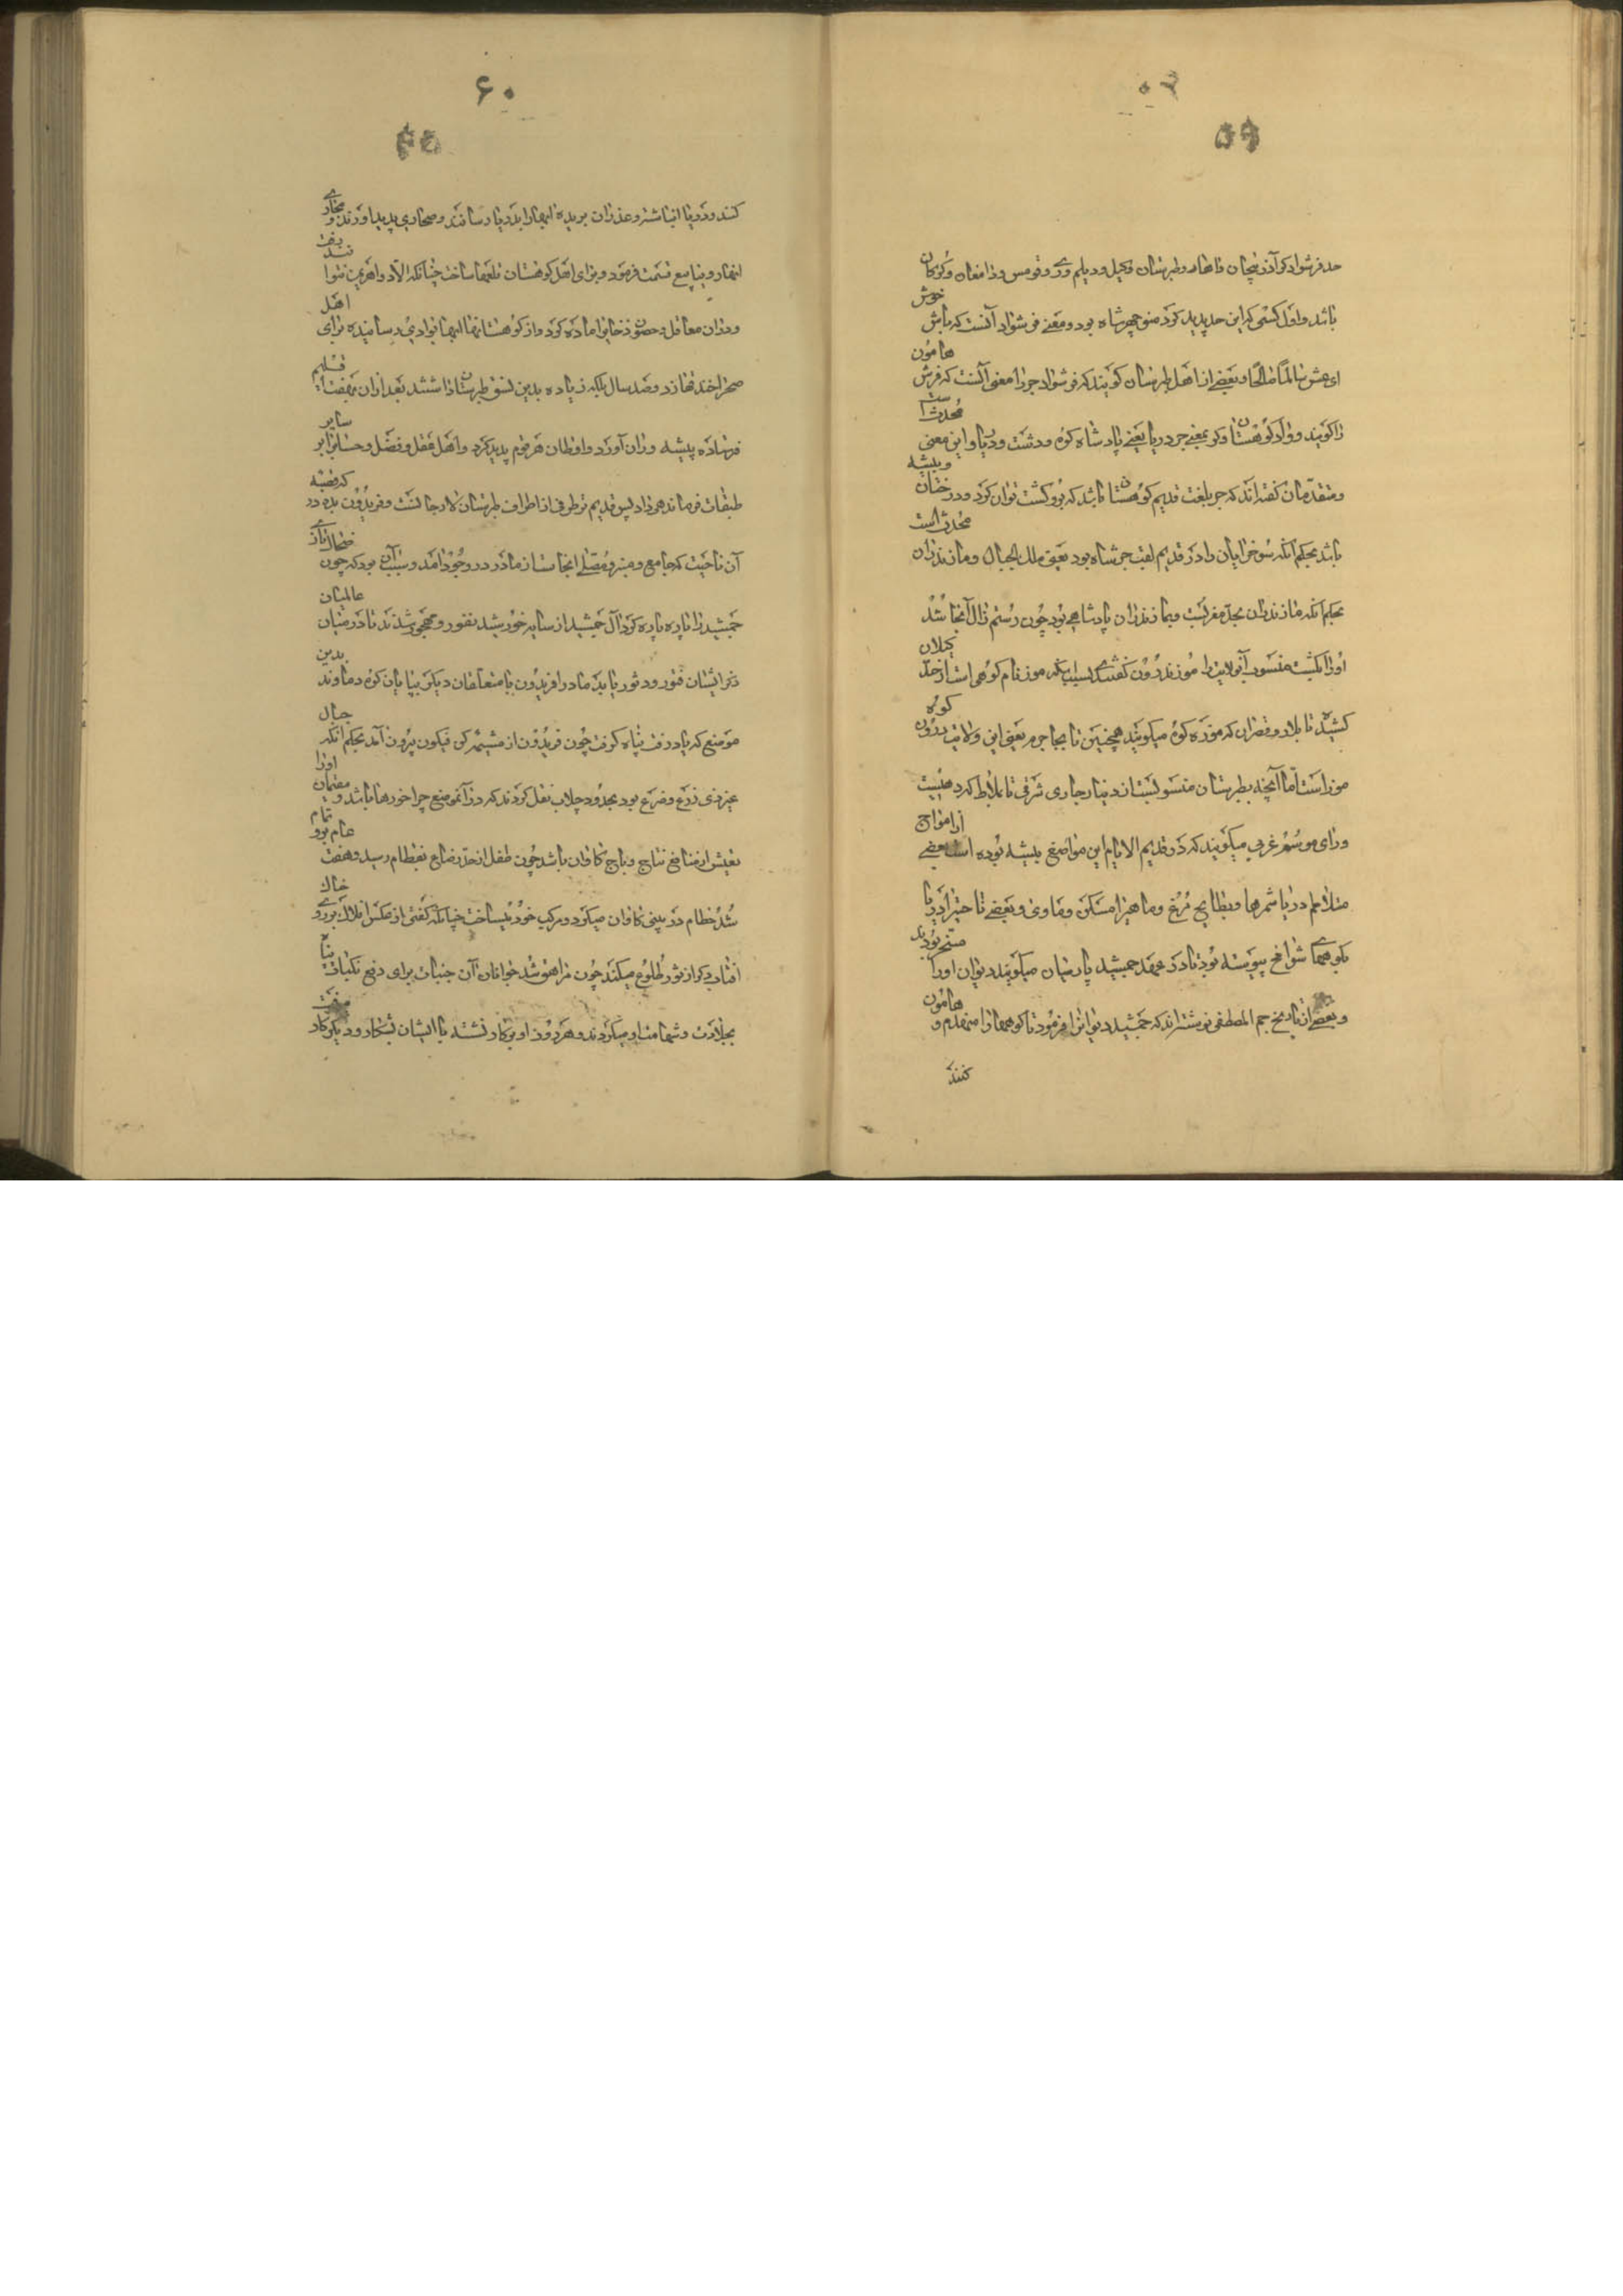 ۵۹
حد فرشوادکر آذربیجان و آهار و طبرستان و کیل و دیلم و ری و قومس و دامغان و کرکان
باشد و اول کسی که این حد پدید کرد منوچهر شاه بود و معنی فرشواد آنست که باش خوش
ای عش سالماً صالحاً و بعضی از اهل طبرستان کویند که فرشواد جر را معنی آنست که فرش هامون
را کویند و واد کوهستان و کر بمعنی جر دریا یعنی پادشاه کوه و دشت و دریا و این معنی محدث است
و متقدمان کفته‌اند که جر بلغت قدیم کوهستان باشد که برو کشت توان کرد و درختان و بیشه
باشد بحکم آنکه سوخرائیان را در قدیم لقب جرشاه بود یعنی ملک الجبال و مازندران محدث است
بحکم آنکه مازندران بحد مغربست و بمازندران پادشاهی بود چون رستم زال آنجا شد
اورا بکشت منسوب این ولایت را موزندرون کفتندی بسبب آنکه موز نام کوهی است از حد کیلان
کشیده تا بلار و قصران که موزه کوه میکویند همچنین تا بجاجرم یعنی این ولایت درون کوه
موز است اما آنچه بطبرستان منسوبست از دینارجاری شرقی تا بملاط که دهیست
ورای هوسم غربی میکویند که در قدیم الایام این مواضع بیشه بوده است بعضی از امواج
متلاطم دریا شمرها و بطایح مرغ و ماهی را مسکن و مأوی و بعضی تا حیز دریا
بکوههای شوامخ پیوسته بود تا در عهد جمشید پارسیان میکویند دیوان اورا مسخر بودند
و بعضی از تاریخ جم المصطفی نوشته‌اند که جمشید دیوانرا فرمود تا کوهها را منهدم و هامون
کنند
۶۰
۶۰
کنند و دریا انباشته و غدران بریده انهار بدریا رسانند و صحاری پدید آورند و مجاری
انهار و ینابیع قسمت فرمود و برای اهل کوهستان قلعها ساخت چنانکه الا دواهر من نتوانند رفت
و دران معاقل و حصون ذخایر آماده کرد و از کوهستانها انهار بوادی رسانیده برای اهل
صحرا خندقها زد و صد سال بلکه زیاده بدین نسق طبرستان داشتند بعد ازان بهفت اقلیم
فرستاده پیشه‌وران آورد و اوطان هر قوم پدید کرد و اهل عقل و فضل و حساب را بر سایر
طبقات فرماندهی داد پس قدیم‌تر طرفی از اطراف طبرستان لارجانست و فریدون بدیه ور که قصبه
آن ناحیت که جامع و منبر و مصلی آنجاست از مادر در وجود آمد و سبب آن بود که چون ضحاک تازی
جمشید را پاره پاره کرد آل جمشید از سایه خورشید نفور و مهجور شدند تا در میان عالمیان
ذکر ایشان فتور و دثور یابد مادر افریدون با متعلقان دیکر بپایان کوه دماوند بدین
موضع که یاد رفت پناه کرفت چون فریدون از مشیمه کن فیکون بیرون آمد بحکم آنکه جبال
غیر ذی زرع و ضرع بود بحدود چلاب نقل کردند که در آنموضع چراخورها باشد و مقیمان اورا
تعیش از منافع نتاج و باج کاوان باشد چون طفل از حد رضاع بفطام رسید و هفت عام برو تمام
شد خطام در بینی کاوان میکرد و مرکب خود میساخت چنانکه کفتی از عکس افلاک بر روی خاک
افتاب دکر از ثور طلوع میکند چون مراهق شد جوانان آن جنبات برای دفع نکبات پناه
بجلادت و شهامت او میکردند و هر روز او بر کاو نشسته با ایشان بشکار و دیکر کار میرفت